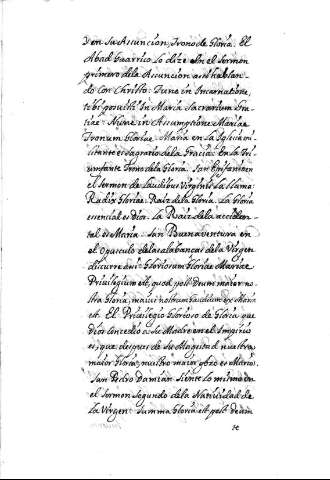 Y en Su Assuncion, Trono de Gloria. El
Abad Guarrico lo dize en el Sermon
primero dela Assuncion assi hablan-
do con Christo: Tu ne in Incarnatione,
tibi posuisti in Maria Sacrarium Gra-
tiae: Nunc in Assumptione Mariae
Tronum Gloriae. Maria en la Iglesia mi-
litante es Sagrario dela Gracia. En la Tri-
umfante Trono dela Gloria. San Efrain en
el Sermon de Laudibus Virginis la llama:
Radix Gloriae: Raiz dela Gloria. La Gloria
essencial es Dios. La Raiz dela acciden-
tal es Maria. San Buenaventura en
el Opusculo delas alabancas dela Virgen
discurre assi: Gloriosum Gloriae Mariae
Privilegium est, quod post Deum maior no-
stra Gloria, maius nostrum Gaudium ex Maria
est. El Privilegio Glorioso de Gloria que
Dios concedio a su Madre en el Impirio
es, que despues de Su Magestad nuestra
maior Gloria, nuestro maior gozo es Maria.
San Pedro Damian siente lo mismo en
el Sermon Segundo dela Natividad de
la Virgen: Summa Gloria est post Deum
te